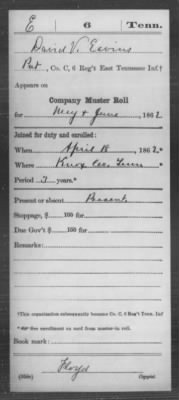 E | 6 | Tenn.
David V. Evins
Pvt, Co. C, 6 Reg't East Tennessee Inf.†
Appears on
Company Muster Roll
for May & June, 1862
Joined for duty and enrolled:
When April 18, 1862*
Where Knox Co. Tenn
Period 3 years.*
Present or absent Present
Stoppage, $ 100 for
Due Gov't $ 100 for
Remarks:
†This organization subsequently became Co. C, 6 Reg't Tenn. Inf
*See enrollment on card from muster-in roll.
Book mark:
Floyd
(358c) Copyist.